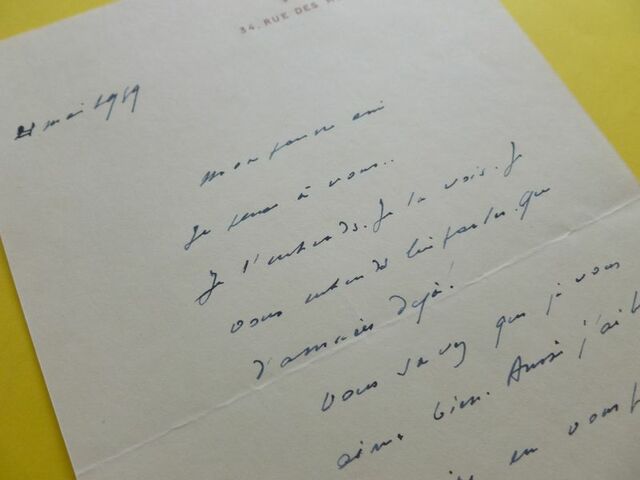 34, RUE DES
mai 1959
Mon pauvre ami
Je pense à vous..
Je l'entends. Je la vois. Je
vous entends lui parler. Que
d'années déjà!
Vous savez que je vous
aime bien. Aussi j'ai
en vous